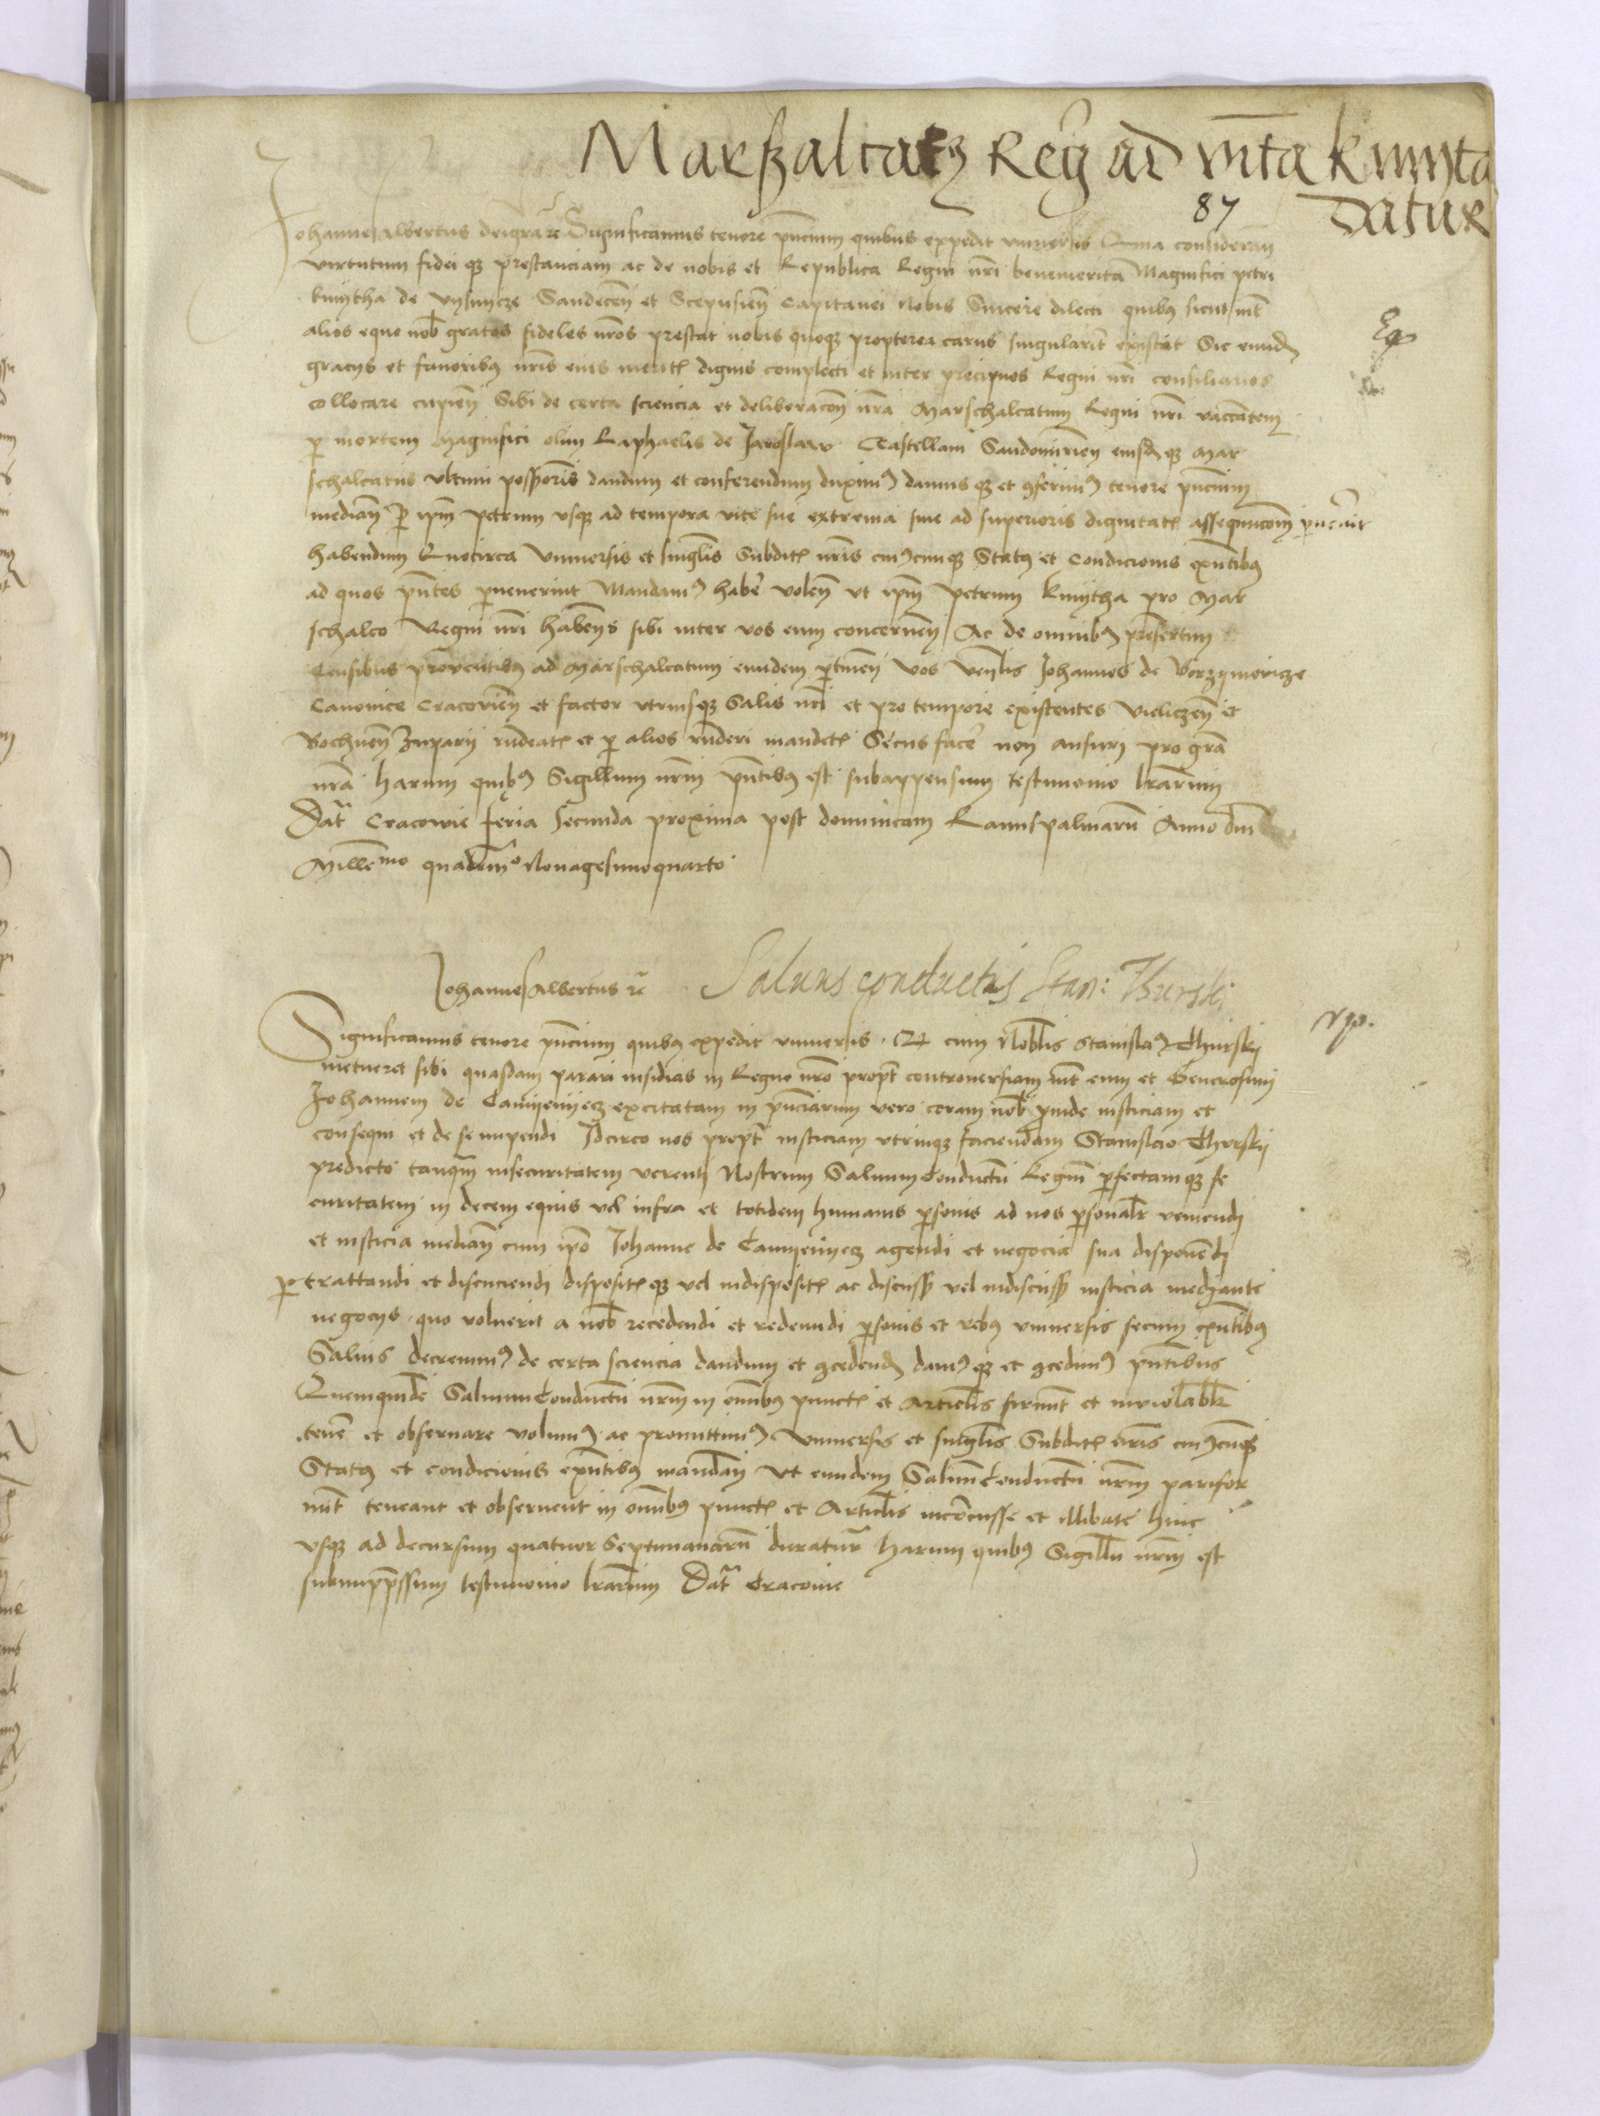 Marszalcatus Regni ad vitam Kmyta
87 datur
Johannes Albertus dei gra rc Significamus tenore pncium quibus expedit vniuersis Quia consideran
virtutum fidei qz prestanciam ac de nobis et Republica Regni nri benemerita Magnifici Petri
kmytha de Vysnycze Sandecen et Scepusien Capitanei Nobis Sincere dilecti quibus sicut int
alios equo nob gratos fideles nros prestat nobis quoqz propterea carus singularit existat Sic eund
gracys et fauoribus nris eius merit dignis complecti et inter precipuos Regni nri consiliarios
collocare cupien Sibi de certa sciencia et deliberacon nra Marschalcatum Regni nri vaccantem
p mortem Magnifici olim Raphaelis de Jaroslaw Castellani Sandomirien eiusdqz Mar
schalcatus vltimi possessoris dandum et conferendum duximus damus qz et conferimus tenore pncium
median P ipm Petrum vsqz ad tempora vite sue extrema siue ad superioris dignitatis assequucom puenit
habendum Quocirca Vniuersis et singlis Subdit nris cuiuscunqz Status et Condicionis existentibus
ad quos pntes peruenerint Mandamus habere volen vt ipm Petrum kmytha pro Mar
schalco Regni nri haben sibi inter vos eum concernen Ac de omnibus presertim
Censibus prouentibus ad Marschalcatum eundem ptinen Vos Venlis Johannes de
Canonice Cracovien et factor vtriusqz Salis nri et pro tempore existentes Vieliczen et
Bochnen Zuparij rndeat et p alios rnderi mandet Secus facere non ausuri pro gra
nra harum quibus Sigillum nrm pntibus est subappensum testimonio lrarum
Dat Cracovie feria Secunda proxima post dominicam Ramispalmarum Anno dni
Millemo quadrinmo Nonagesimoquarto
Johannes Albertus rc Saluus conductus Stan: Thurski
Significamus tenore pncium quibus expedit vniuersis Q cum Nobilis Stanislaus Thurskij
metueret sibi quasdam parari insidias in Regno nro propt controuersiam int eum et Generosum
Johannem de excitatam in pnciarum vero coram nob pinde iusticiam et
consequi et de se impendi Idcirco nos propt iusticiam vtrinqz faciendam Stanislao Thurskij
predicto tanqm insecuritatem verenti Nostrum Saluumconductu Regium perfectamqz se
curitatem in decem equis vel infra et totidem humanis personis ad nos personalr veniendi
et iusticia median cum ipo Johanne de agendi et negocia sua disponendi
ptrattandi et discuciendi dispositqz vel indisposit ac discuss vel indiscuss iusticia mediante
negocys quo voluerit a nob recedendi et redeundi personis et rebus vniuersis secum existentibus
Saluis decreuimus de certa sciencia dandum et concedend damus qz et concedimus pntibus
Quemquide Saluumconductu nrm in omnibus punct et Articlis firmit et inviolabilr
tenere et obseruare volumus ac promittimus Vniuersis et singlis Subdit nris cuiuscunqz
Status et condicionis existentibus mandan Vt eundem Saluumconductu nrm parifor
mit teneant et obseruent in omnibus punct et Articlis inconcusse et illibate hinc
vsqz ad decursum quatuor Septimanarum duratur harum quibus Sigillu nrm est
subimppressum testimonio lrarum Dat Cracovie